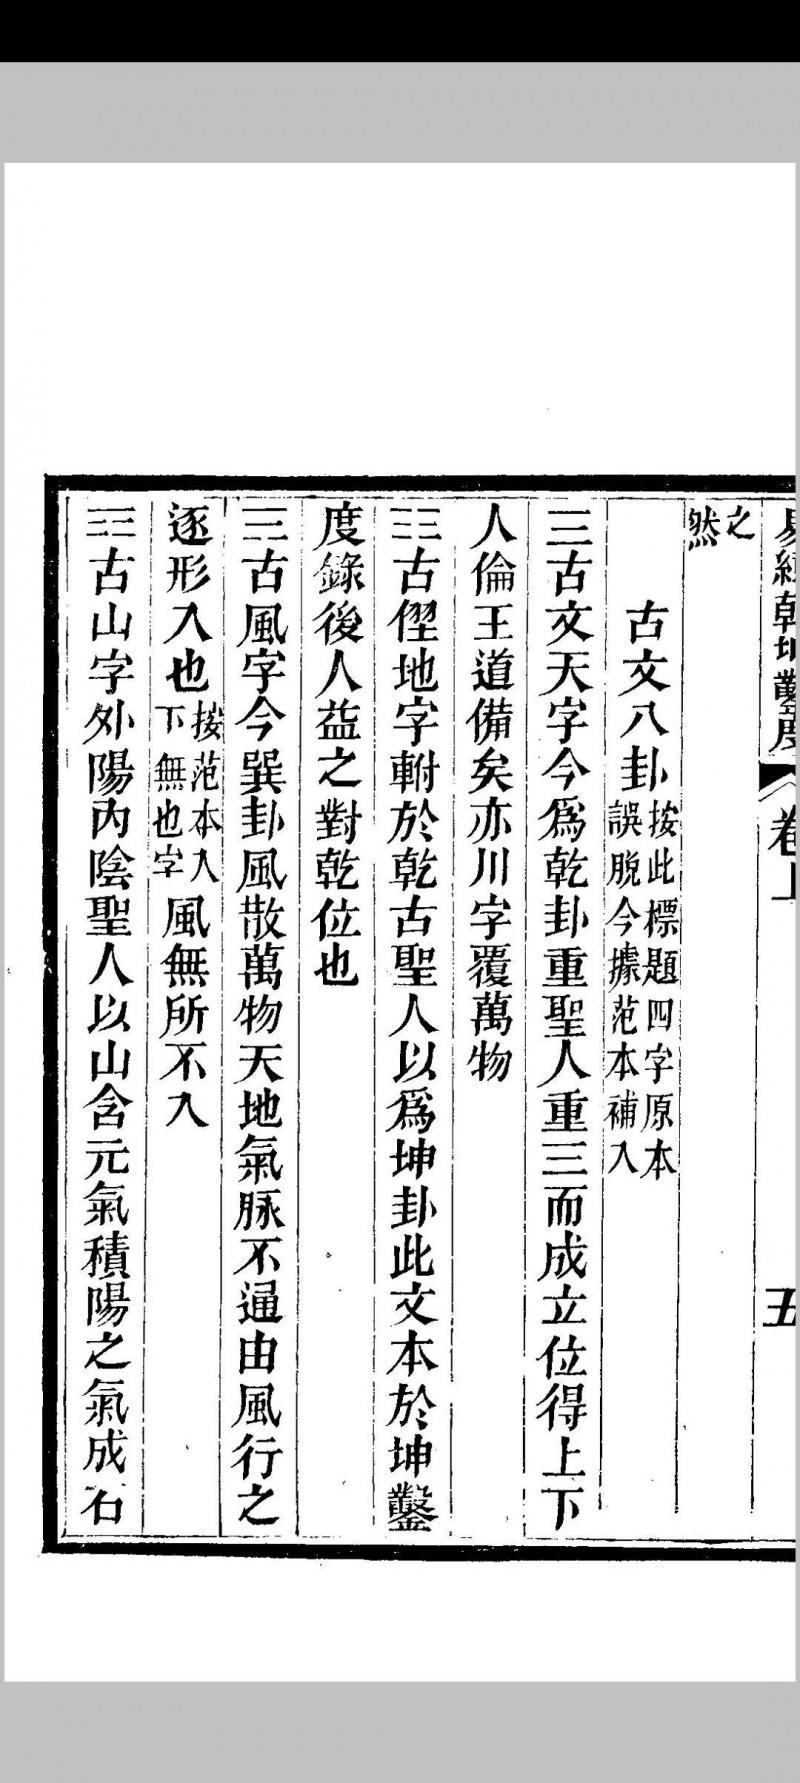 易經乾坤鑿度
卷上
五
之
然
古文八卦按此標題四字原本
誤脫今據范本補入
☰古文天字今為乾卦重聖人重三而成立位得上下
人倫王道備矣亦川字覆萬物
☷古𡍩地字軵於乾古聖人以為坤卦此文本於坤鑿
度錄後人益之對乾位也
☴古風字今巽卦風散萬物天地氣脉不通由風行之
逐形入也按范本入
下無也字風無所不入
☶古山字外陽內陰聖人以山含元氣積陽之氣成石